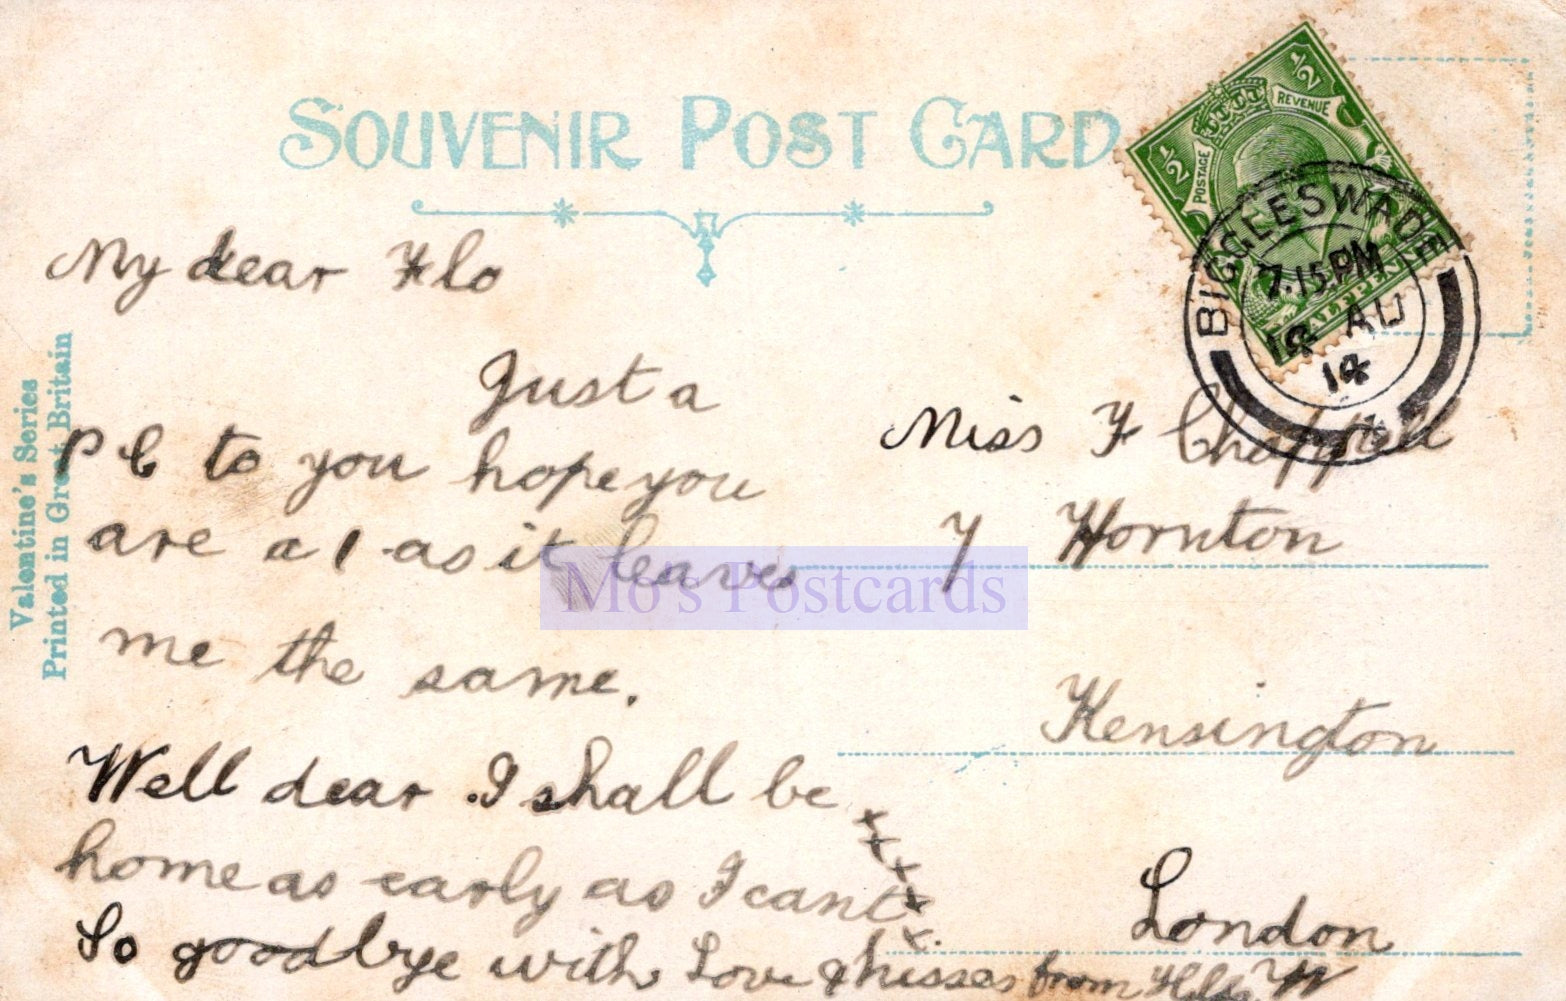 SOUVENIR POST CARD
½ ½
POSTAGE REVENUE
HALFPENNY
BIGGLESWADE
7.15 PM
14 AU
14
Valentine's Series
Printed in Great Britain
My dear Flo
Just a
P C to you hope you
are a 1 as it leaves
me the same.
Well dear I shall be
home as early as I cant
So goodbye with Love & kisses from
x x x x x x
Miss F Chappell
7 Hornton
Kensington
London
W
Mo's Postcards